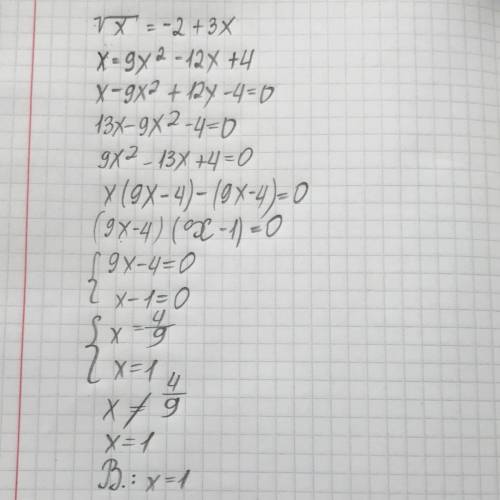 √x = -2 + 3x
x = 9x² - 12x + 4
x - 9x² + 12x - 4 = 0
13x - 9x² - 4 = 0
9x² - 13x + 4 = 0
x(9x - 4) - (9x - 4) = 0
(9x - 4)(x - 1) = 0
{ 9x - 4 = 0
x - 1 = 0
{ x = 4/9
x = 1
x ≠ 4/9
x = 1
В.: x = 1